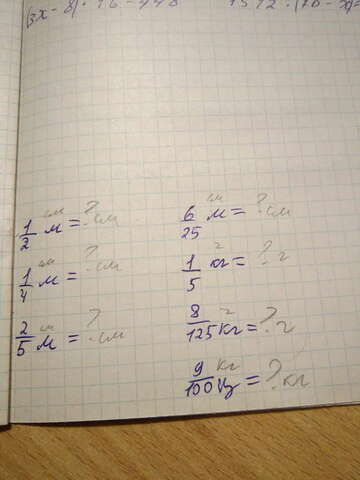 (3x - 8) · 16 = 448
1/2 м = ? см
1/4 м = ? см
2/5 м = ? см
6/25 м = ? см
1/5 кг = ? г
8/125 кг = ? г
9/100 ц = ? кг